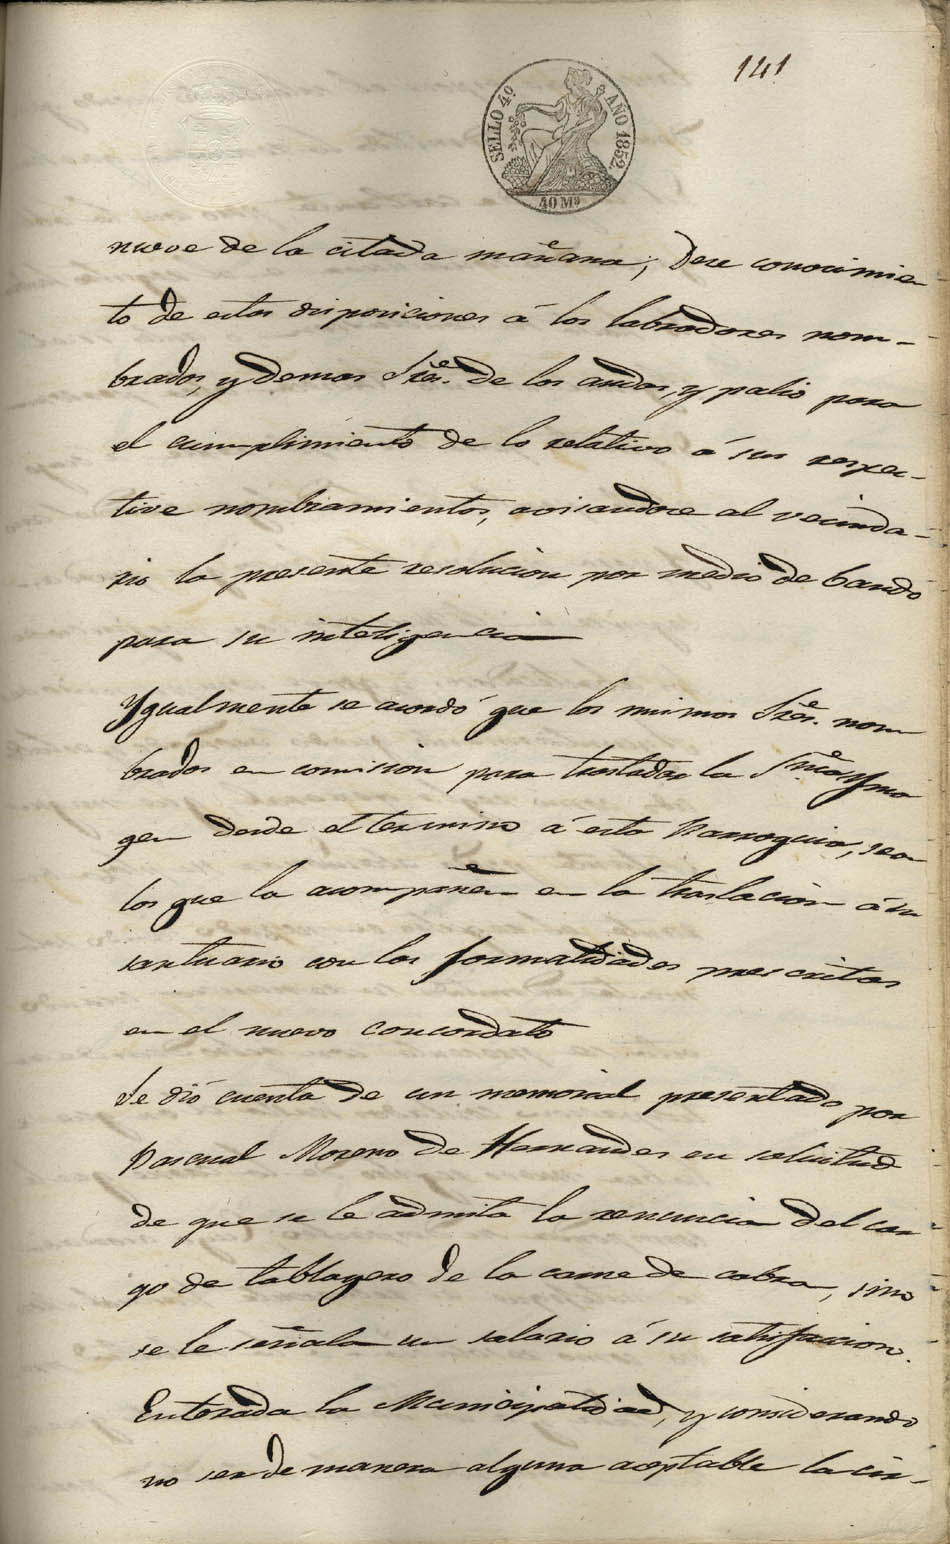 141
SELLO 4º AÑO 1852.
40 Mº
nueve de la citada mañana; Dese conocimien-
to de estas disposiciones á los labradores nom-
brados, y demas Sres. de los andas, y palio para
el cumplimiento de lo relativo á sus respec-
tive nombramientos, avisandose al vecinda-
rio la presente resolucion por medio de bando
para su inteligencia
Ygualmente se acordó que los mismos Sres. nom
brados en comision para trasladar la Sma Yma
gen desde el termino á esta Parroquia, sean
los que la acompañen en la traslacion á su
santuario con las formalidades prescritas
en el nuevo Concordato
Se dió cuenta de un memorial presentado por
Pascual Moreno de Hernandes en solicitud
de que se le admita la renuncia del car
go de tablagero de la carne de cabra, sino
se le señala un salario á su satisfaccion.
Enterada la Municipalidad, y considerando
no ser de manera alguna aceptable la cir-